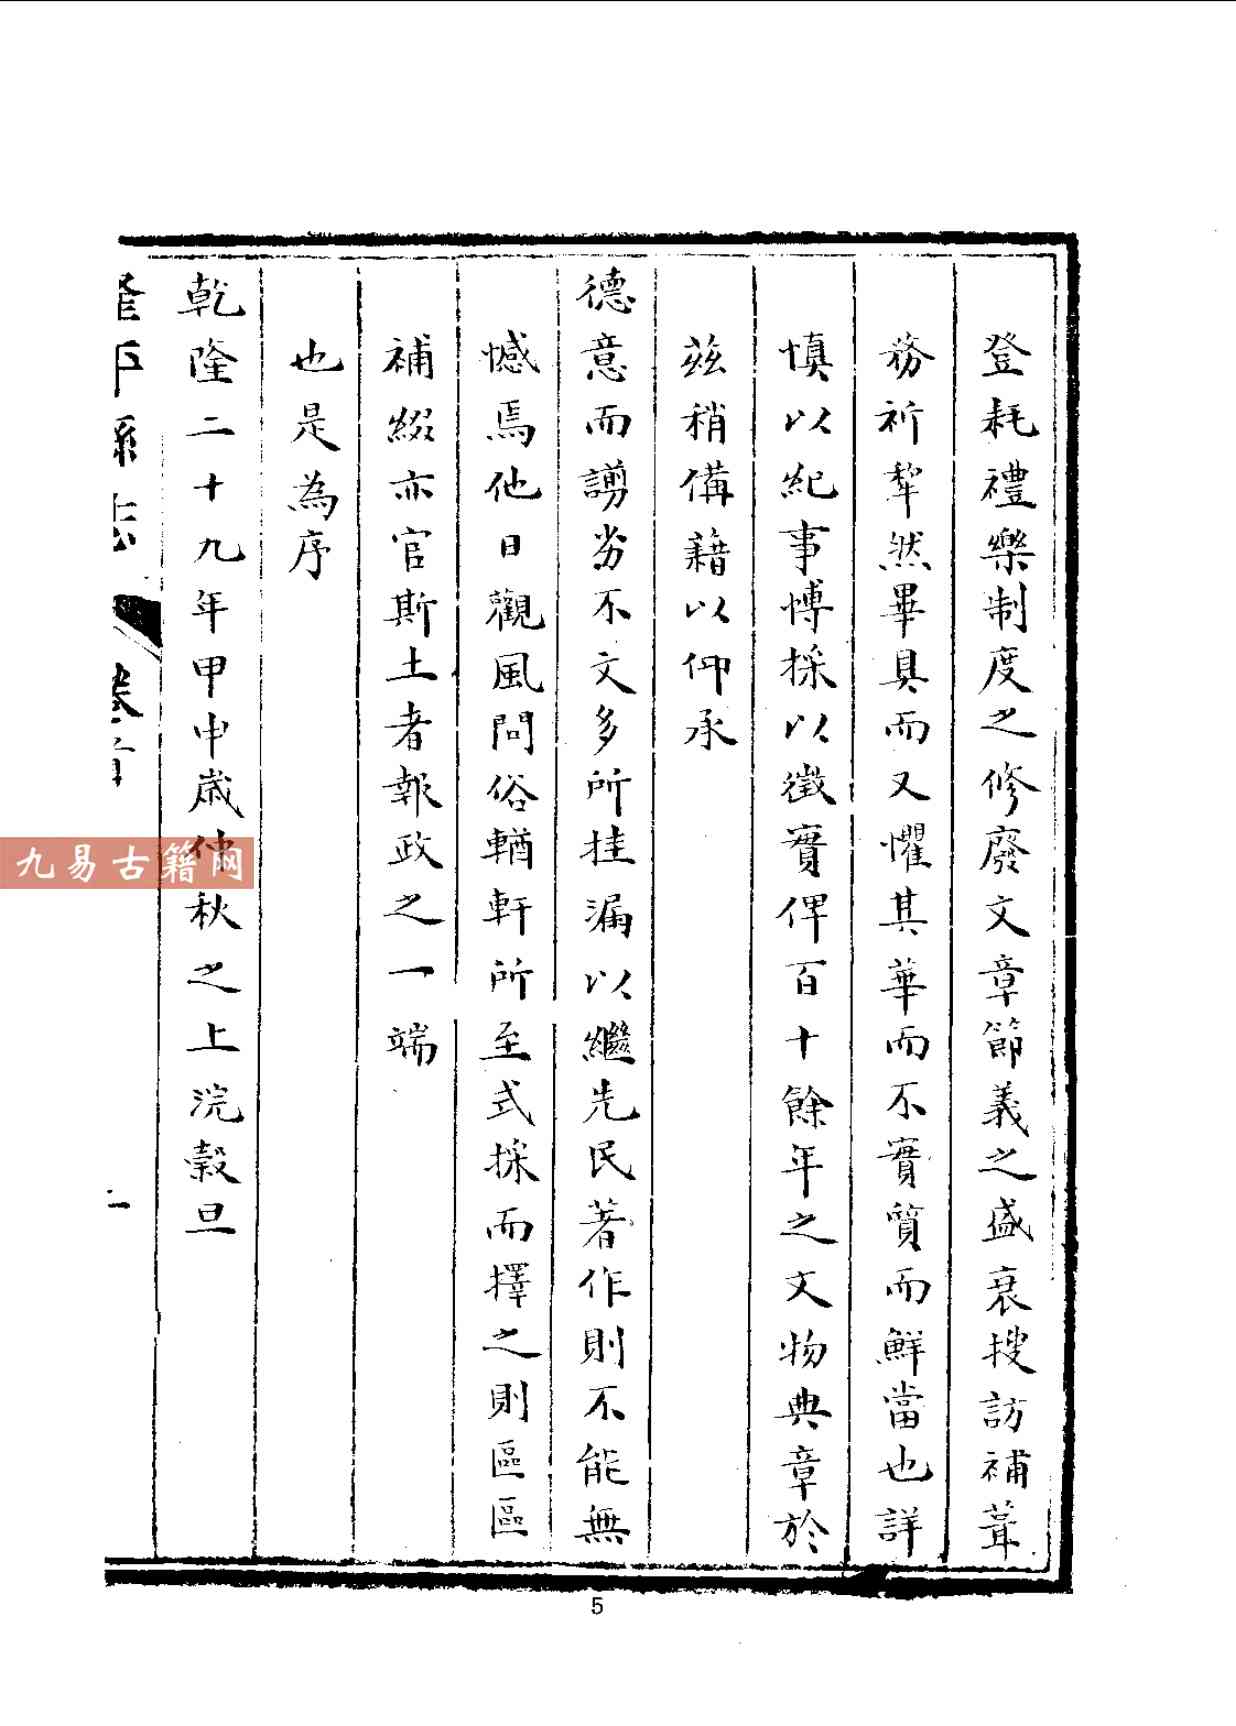 登耗禮樂制度之修廢文章節義之盛衰搜訪補葺
務祈犂然畢具而又懼其華而不實質而鮮當也詳
慎以紀事愽採以徵實俾百十餘年之文物典章於
茲稍備藉以仰承
德意而謭劣不文多所挂漏以繼先民著作則不能無
憾焉他日觀風問俗輶軒所至式採而擇之則區區
補綴亦官斯土者報政之一端
也是為序
乾隆二十九年甲申歲仲秋之上浣榖旦
隆平縣志 卷首
九易古籍网
5